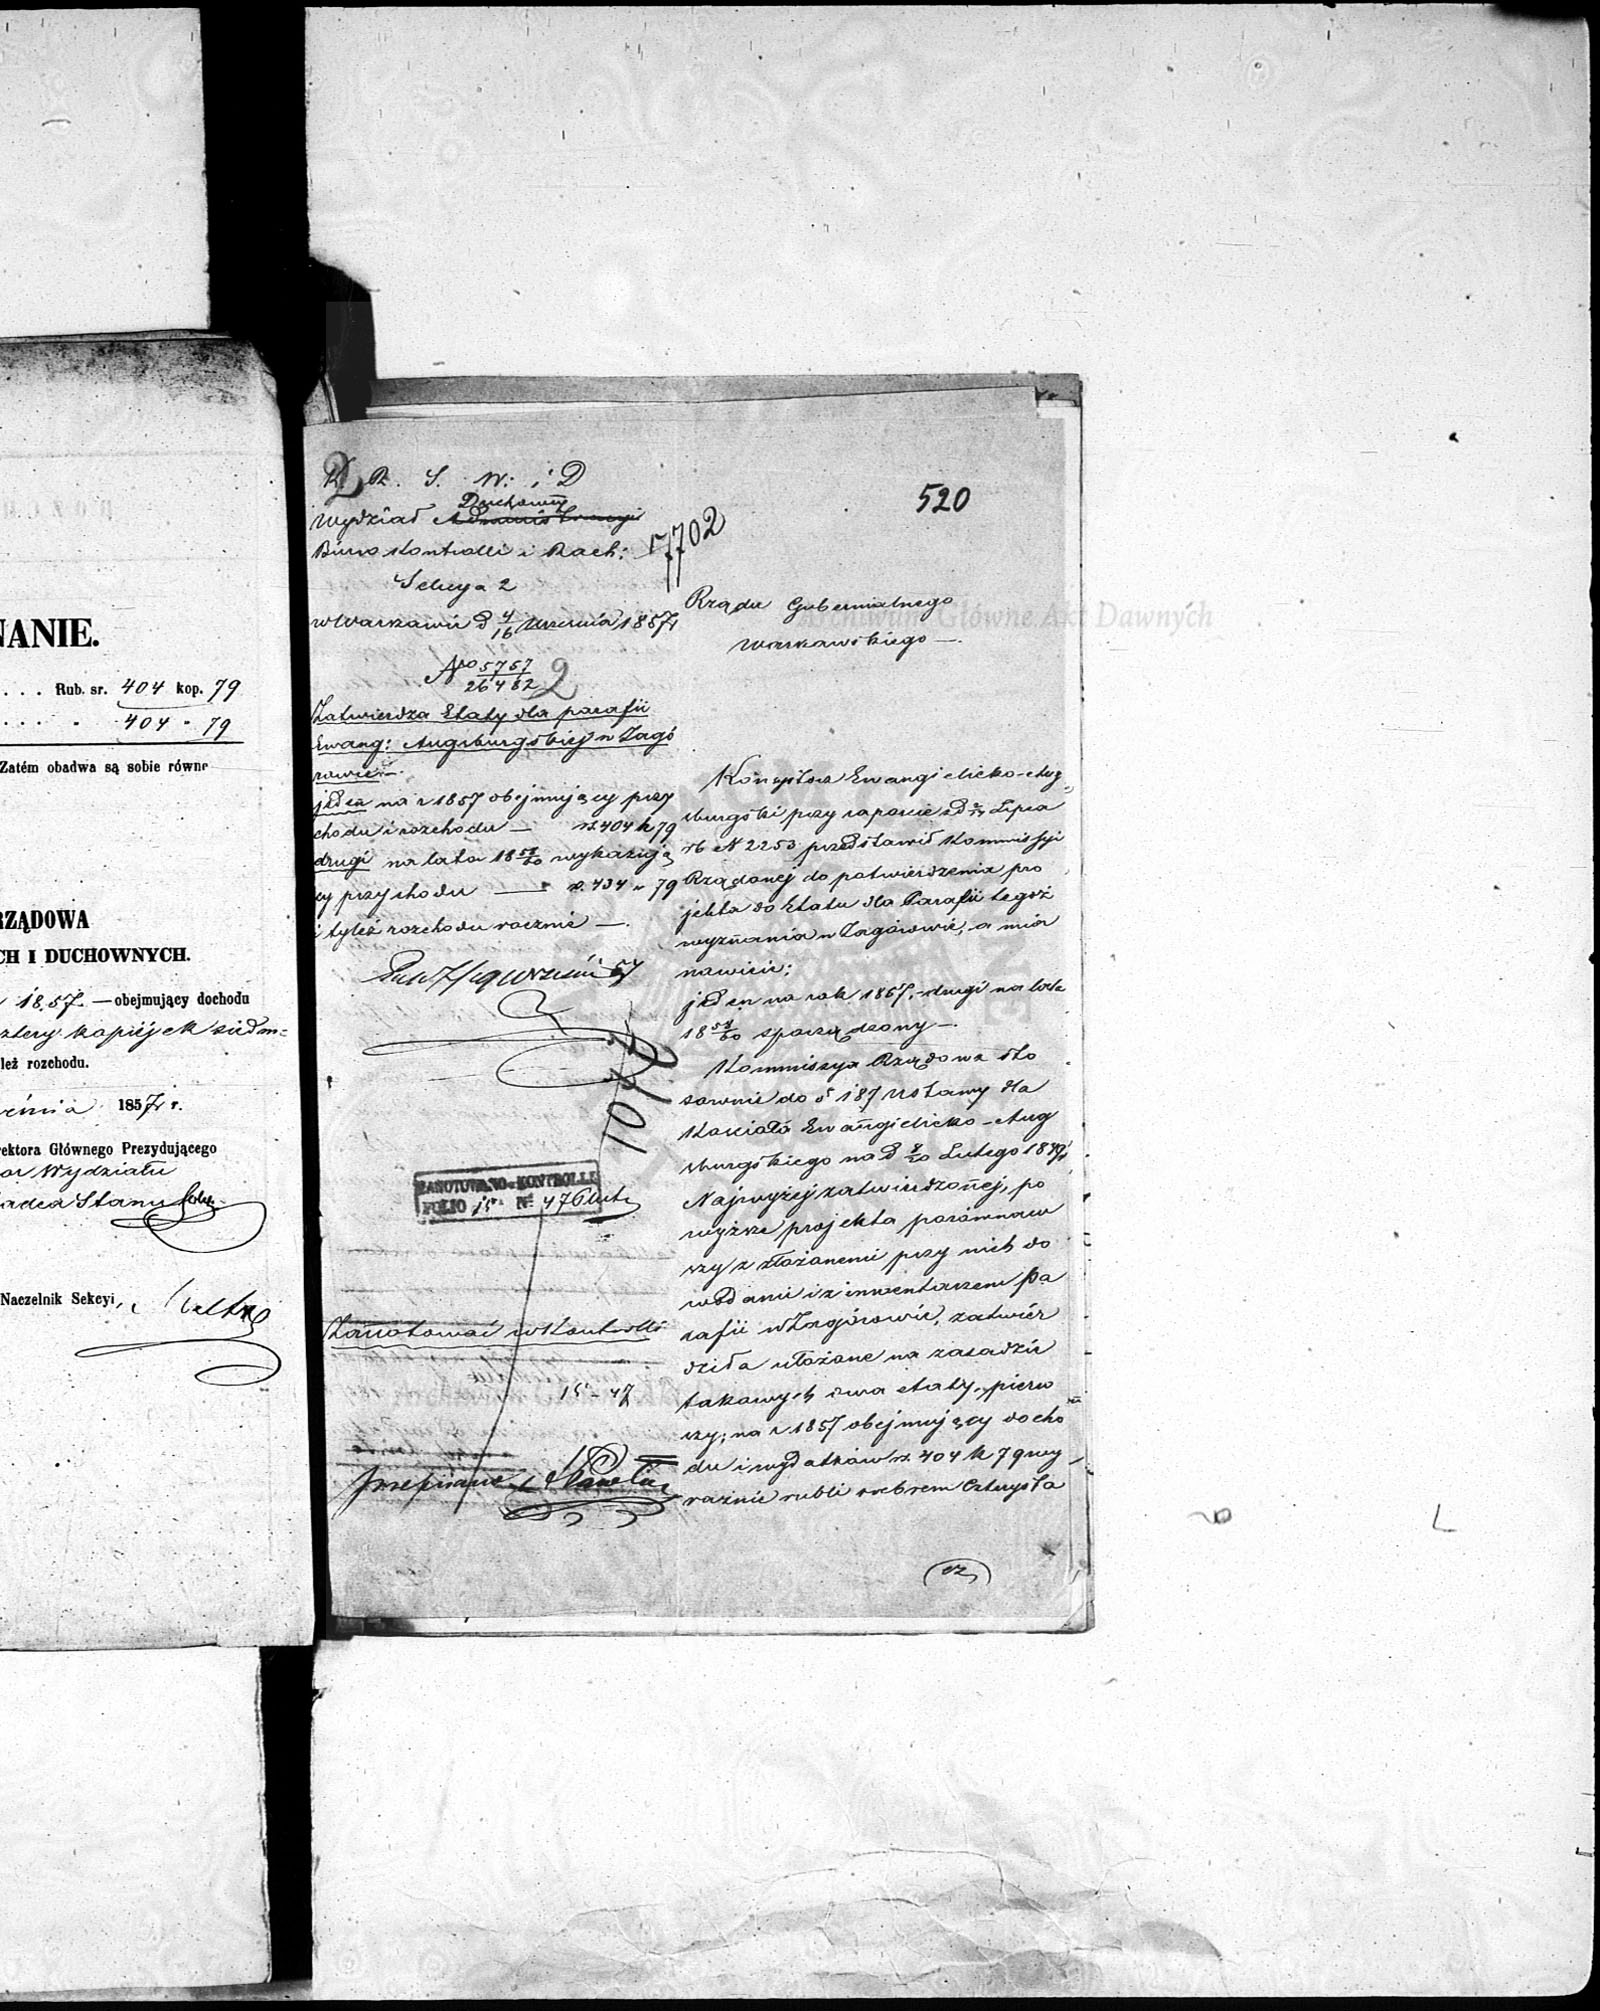 NANIE.
. . . . Rub. sr. 404 kop. 79
404 " 79
Zatém obadwa są sobie równe
RZĄDOWA
CH I DUCHOWNYCH.
1857. — obejmujący dochodu
cztery kopijek siedm=
leż rozchodu.
1857 r.
rektora Głównego Prezydującego
Wydziału
adca Stanu
Naczelnik Sekcyi,
K. R. S. W. i D
Duchowny
Wydział Administracyi
Biuro Kontrolli i Rach:
Sekcya 2
w Warszawie d 4/16 Września 1857 r
No 5757/26482
2
7702
Zatwierdza Etaty dla parafii
Ewang: Augsburgskiej w Zagó
rowie.—
jeden na r 1857 obejmujący przy
chodu i rozchodu — rs. 404 k 79
drugi na lata 1858/60 wykazują
cy przychodu — r. 434 " 79
i tyleż rozchodu rocznie —.
ZANOTOWANO w KONTROLLI
FOLIO 15 N° 47
Zanotować w Kontrolli
15 - 47
Przepisano
520
Rządu Gubernialnego
Warszawskiego —.
Archiwum Główne Akt Dawnych
Konsystorz Ewangielicko-Aug
sburgski przy raporcie z d Lipca
rb N 2253 przedstawił Kommissyi
Rządowej do potwierdzenia pro
jekta do Etatu dla Parafii tegoż
wyznania w Zagórowie, a mia
nowicie:
jeden na rok 1857, drugi na lata
1858/60 sporządzony —.
Kommissya Rządowa sto
sownie do § 187 Ustawy dla
Kościoła Ewangielicko-Aug
sburgskiego na d 8/20 Lutego 1849 r
Najwyżej zatwierdzonej, po
wyższe projekta porównaw
szy z złożonemi przy nich do
wodami i z inwentarzem Pa
rafii w Zagórowie, zatwier
dziła ułożone na zasadzie
takowych dwa etaty, pierw
szy; na r 1857 obejmujący docho
du i wydatków rs. 404 k 79 wy
raźnie rubli srebrem Czterysta